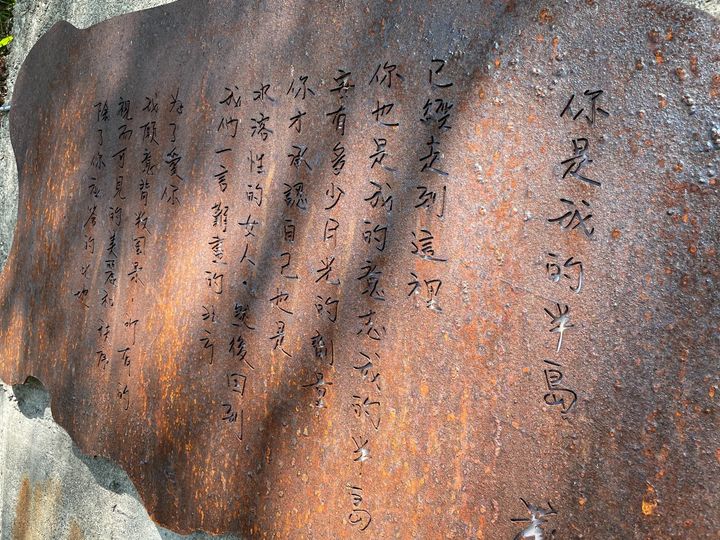 你是我的半島
已經走到這裡
你也是我的意志我的半島
要有多少日光的劑量
你才承認自己也是
水溶性的女人。然後回到
我們一言難盡的北方
為了愛你
我願意背叛,所有的
視而可見的美麗和秩序
除了你應答的